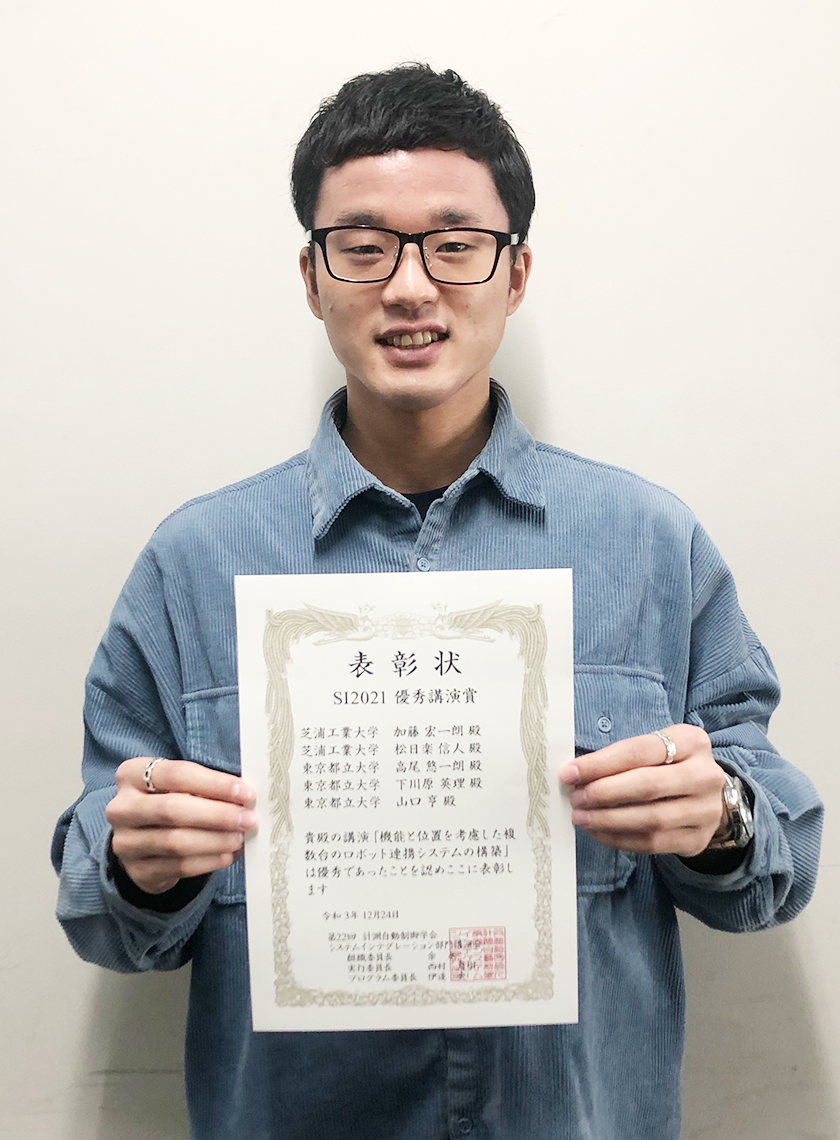 表彰状
SI2021 優秀講演賞
芝浦工業大学 加藤 宏一朗 殿
芝浦工業大学 松日楽 信人 殿
東京都立大学 高尾 悠一朗 殿
東京都立大学 下川原 英理 殿
東京都立大学 山口 亨 殿
貴殿の講演「機能と位置を考慮した複
数台のロボット連携システムの構築」
は優秀であったことを認めここに表彰し
ます
令和3年12月24日
第22回 計測自動制御学会
システムインテグレーション部門講演会
組織委員長
実行委員長 西村
プログラム委員長 伊達